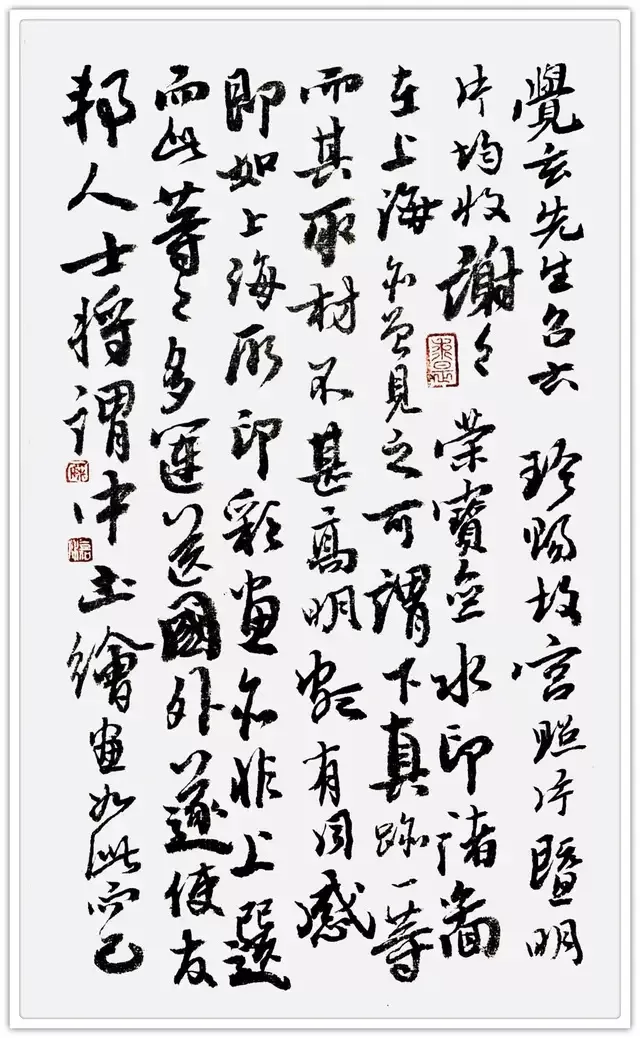 覺玄先生 珍賜故宮照片暨明
片均收謝々 榮寶齋水印諸圖
在上海亦曾見之可謂下真跡一等
而其取材不甚高明 有同感
即如上海所印彩畫亦非上選
而此等々多運送國外遂使友
邦人士將謂中国繪畫如此而已
求是